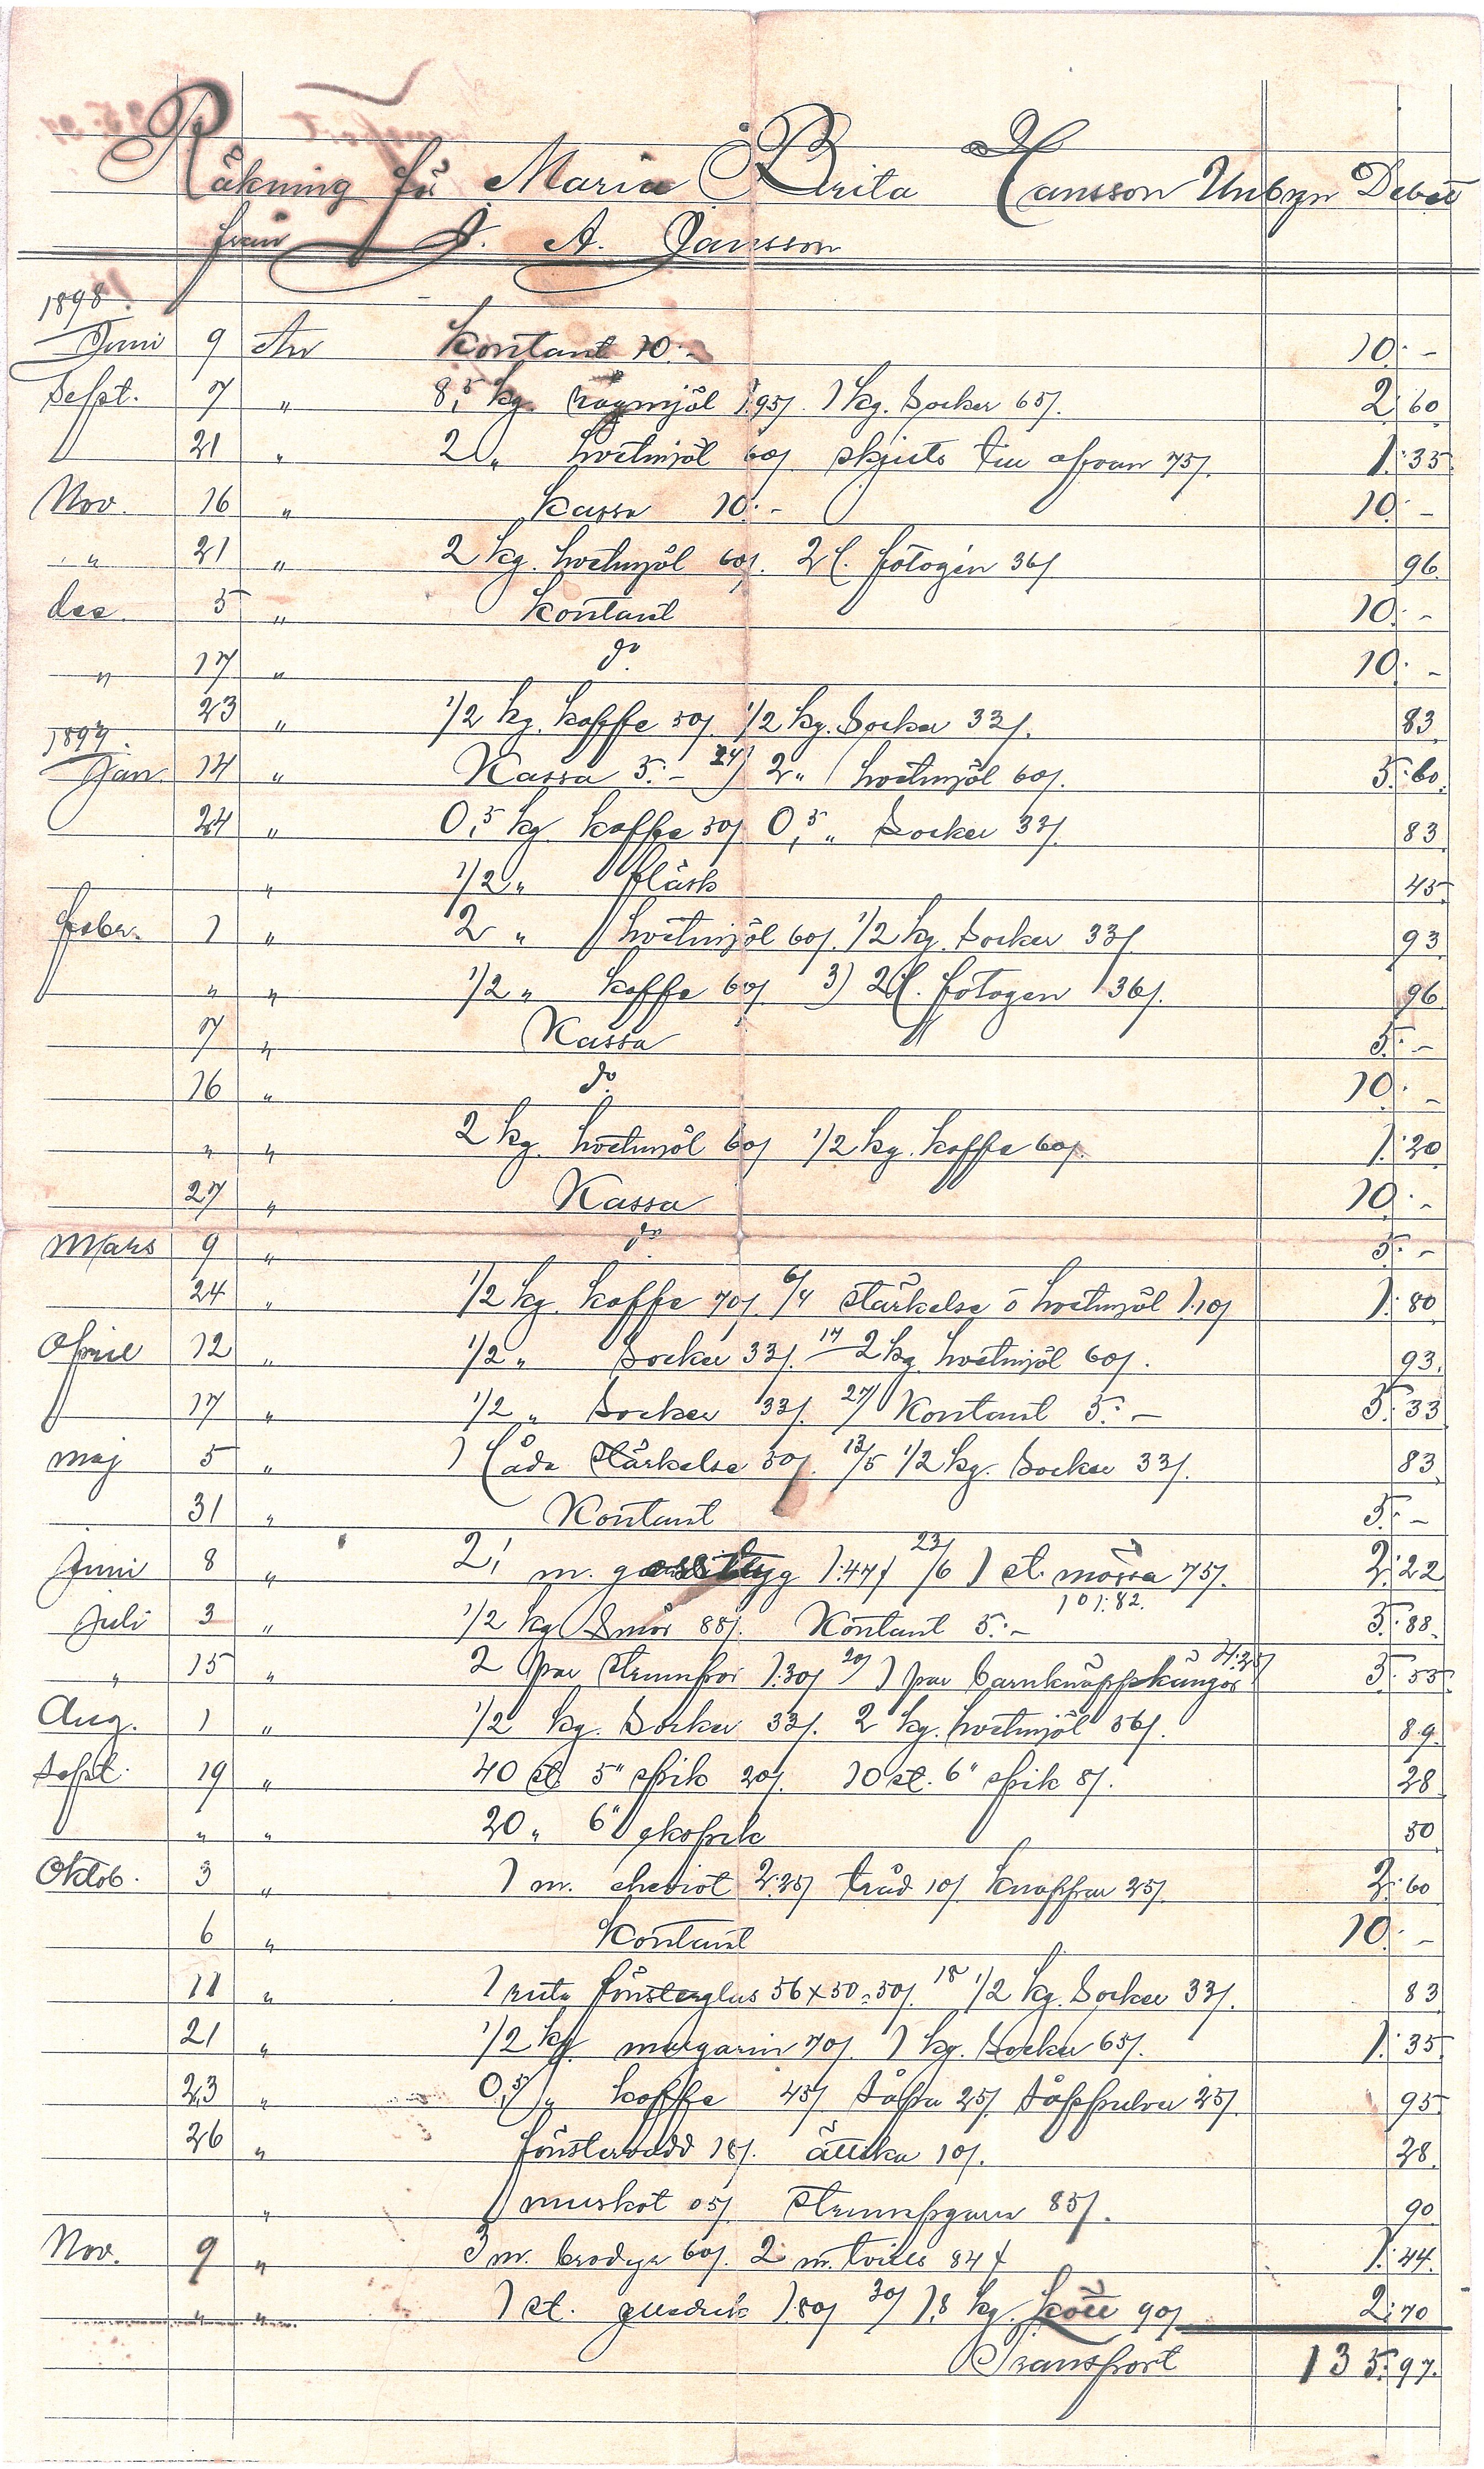 Räkning för Maria Brita Hansson Unbyn Debet
från J. A. Jansson
1898.
Juni 9 An Kontant 10:- 10:-
Sept. 7 " 8,5 kg. rågmjöl 1.95/. 1 kg. Socker 65/. 2:60
21 " 2 " hvetmjöl 60/ skjuts till afvan 75/. 1:35
Nov. 16 " Kassa 10:- 10:-
" 21 " 2 kg. hvetmjöl 60/. 2 l. fotogén 36/ 96
dec. 5 " Kontant 10:-
" 17 " do 10:-
23 " 1/2 kg. kaffe 50/. 1/2 kg. Socker 33/. 83
1899.
Jan. 14 " Kassa 5:- 24/ 2 " hvetmjöl 60/. 5:60
24 " 0,5 kg kaffe 50/ 0,5 " Socker 33/. 83
" 1/2 " fläsk 45
febr. 1 " 2 " hvetmjöl 60/. 1/2 kg. Socker 33/ 93
" " 1/2 " kaffe 60/. 3) 2 l. fotogen 36/. 96
7 " Kassa 5:-
16 " do 10:-
" " 2 kg. hvetmjöl 60/ 1/2 kg. kaffe 60/. 1:20
27 " Kassa 10:-
Mars 9 " do 5:-
24 " 1/2 kg. kaffe 70/. 6/4 stärkelse o hvetmjöl 1.10/ 1:80
April 12 " 1/2 " Socker 33/. 17 2 kg. hvetmjöl 60/. 93.
17 " 1/2 " Socker 33/. 27/ Kontant 5:- 5:33
maj 5 " 1 låda stärkelse 50/. 13/5 1/2 kg. Socker 33/. 83
31 " Kontant 5:-
Juni 8 " 2,1 m. 1:47/ 23/6 1 st. mössa 75/. 2:22
101:82.
Juli 3 " 1/2 kg Smör 88/. Kontant 5:- 5:88.
" 15 " 2 par strumpor 1:30/ 20/ 1 par barnknäppkängor 4:25/ 5:55
Aug. 1 " 1/2 kg. Socker 33/. 2 kg. hvetmjöl 56/. 89.
Sept. 19 " 40 st. 5" spik 20/. 10 st. 6" spik 8/. 28
" " 20 " 6" 50
Oktob. 3 " 1 m. cheviot 2:25/ tråd 10/. Knappar 25/. 2:60
6 " Kontant 10:-
11 " 1 ruta fönsterglas 56x50=50/. 18 1/2 kg. Socker 33/. 83
21 " 1/2 kg. margarin 70/. 1 kg. Socker 65/. 1:35
23 " 0,5/ " kaffe 45/ Såpa 25/. Såppulver 25/. 95
26 " fönstervadd 18/. ättika 10/. 28.
" muskot 05/. Strumpgarn 85/. 90
Nov. 9 " 3 m. brodyr 60/. 2 m. tvills 84/ 1:44.
" " 1 st. 1:80/ 30/ 1,8 kg. kött 90/ 2:70
Transport 135:97.